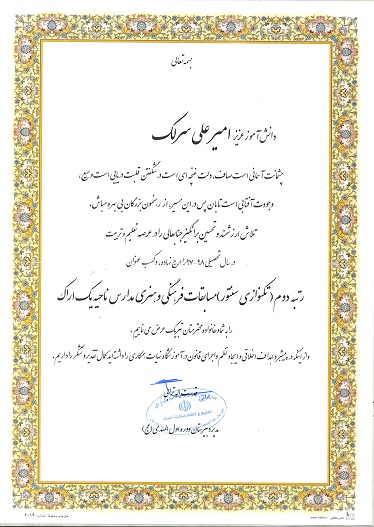 بسمه تعالی
دانش آموز عزیز امیرعلی سرلک
چشمانت آسمانی است صاف، دلت غنچه ای است در شگفتن قلبت دریایی است وسیع،
وجودت آفتابی است تابان پس در این مسیر، از رهنمون بزرگان بی بهره مباش.
تلاش ارزشمند و تحسین برانگیز جنابعالی را در عرصه تعلیم و تربیت
در سال تحصیلی ۹۸-۹۷ را ارج نهاده، و کسب عنوان
رتبه دوم (تکنوازی سنتور) مسابقات فرهنگی و هنری مدارس ناحیه یک اراک
را به شما و خانواده محترمتان تبریک عرض می نماییم.
و از اینکه در پیشبرد اهداف اخلاقی و ایجاد نظم و اجرای قانون در آموزشگاه نهایت همکاری را داشته اید کمال تقدیر و تشکر را داریم.
مدیر دبیرستان دوره اول المهدی (عج)